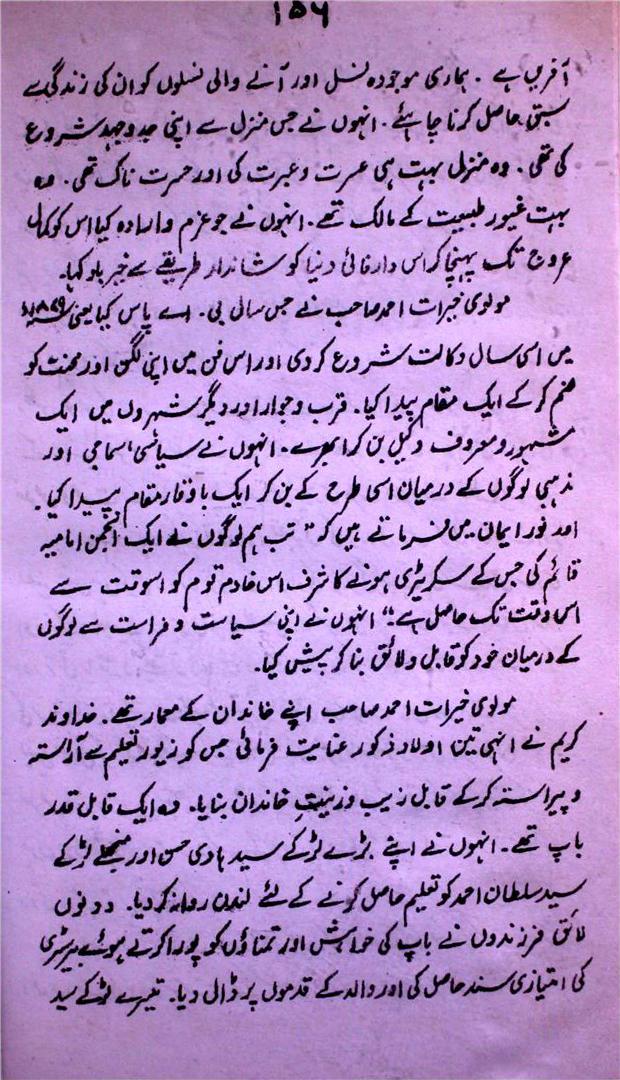 ۱۵۶
آفریں ہے ۔ ہماری موجودہ نسل اور آنے والی نسلوں کو ان کی زندگی سے
سبق حاصل کرنا چاہئے ۔ انہوں نے جس منزل سے اپنی جدوجہد شروع
کی تھی ۔ وہ منزل بہت ہی عسرت و عبرت کی اور حسرت ناک تھی ۔ وہ
بہت غیور طبیعت کے مالک تھے ۔ انہوں نے جو عزم و ارادہ کیا اس کو کمال
عروج تک پہنچا کر اس دار فانی دنیا کو شاندار طریقے سے خیر باد کہا۔
مولوی خیرات احمد صاحب نے جس سال بی ۔ اے پاس کیا یعنی
میں اسی سال وکالت شروع کر دی اور اس فن میں اپنی لگن اور محنت کو
ضم کر کے ایک مقام پیدا کیا ۔ قرب و جوار اور دیگر شہروں میں ایک
مشہور و معروف وکیل بن کر ابھرے ۔ انہوں نے سیاسی، سماجی اور
مذہبی لوگوں کے درمیان اسی طرح کے بن کر ایک باوقار مقام پیدا کیا ۔
اور نور ایمان میں فرماتے ہیں کہ " تب ہم لوگوں نے ایک انجمن امامیہ
قائم کی جس کے سکریٹری ہونے کا شرف اس خادم قوم کو اسوقت سے
اس وقت تک حاصل ہے " انہوں نے اپنی سیاست و فراست سے لوگوں
کے درمیان خود کو قابل و لائق بنا کر پیش کیا ۔
مولوی خیرات احمد صاحب اپنے خاندان کے معمار تھے ۔ خداوند
کریم نے انہیں تین اولاد ذکور عنایت فرمائی جس کو زیور تعلیم سے آراستہ
و پیراستہ کر کے قابل زیب و زینتِ خاندان بنایا ۔ وہ ایک قابل قدر
باپ تھے ۔ انہوں نے اپنے بڑے لڑکے سید ہادی حسن اور منجھلے لڑکے
سید سلطان احمد کو تعلیم حاصل کرنے کے لئے لندن روانہ کر دیا ۔ دونوں
لائق فرزندوں نے باپ کی خواہش اور تمناؤں کو پورا کرتے ہوئے بیرسٹری
کی امتیازی سند حاصل کی اور والد کے قدموں پر ڈال دیا ۔ تیسرے لڑکے سید